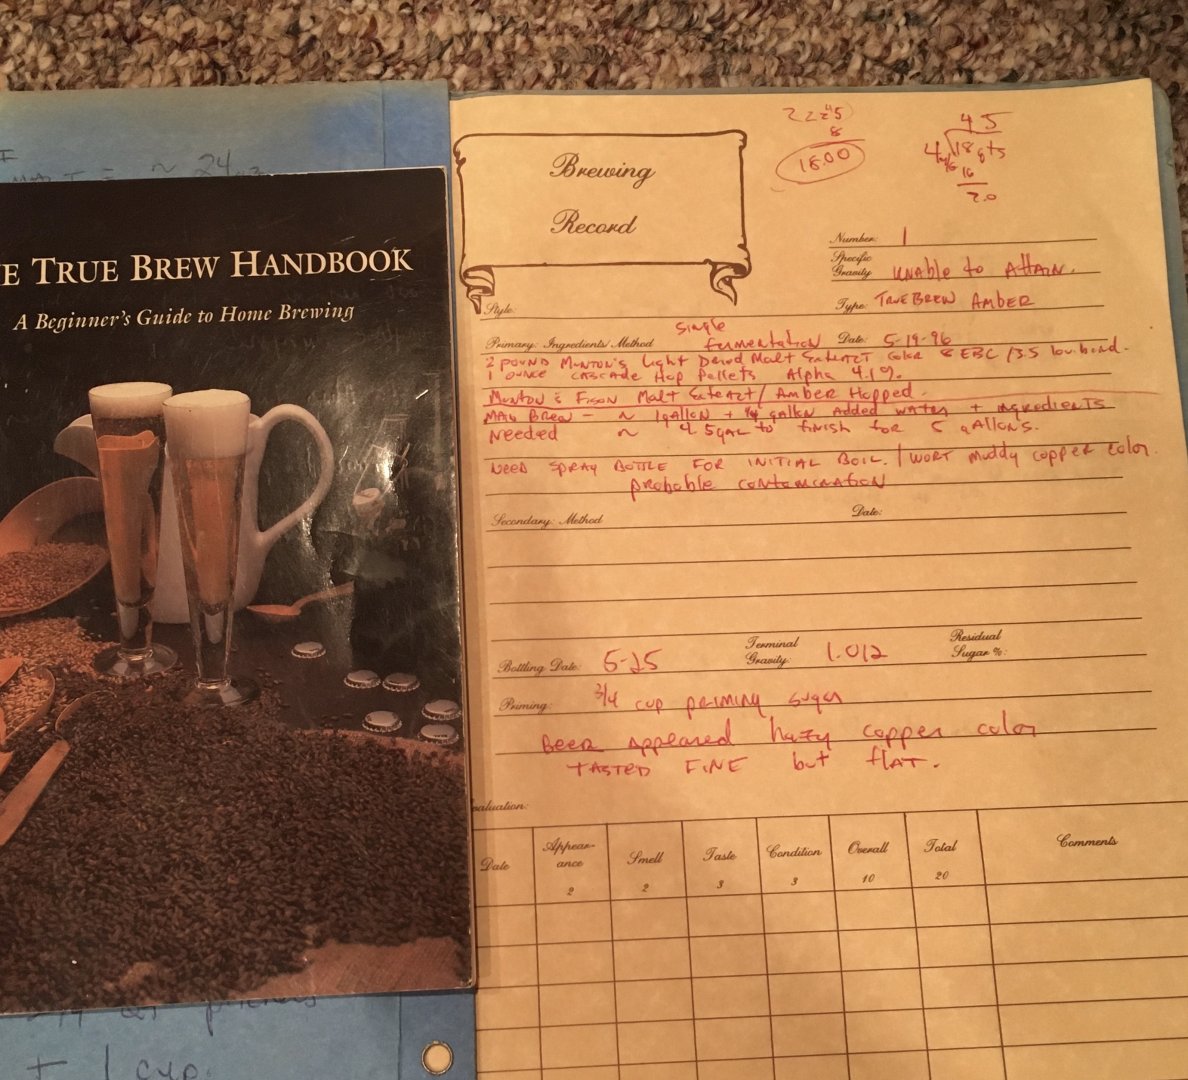 ~ 24
E TRUE BREW HANDBOOK
A Beginner's Guide to Home Brewing
+ 1 cup.
Brewing
Record
8
18.00
4.5
4 18 qts
16
2.0
Number: 1
Specific
Gravity unable to Attain.
Type: True Brew Amber
Style:
single
Primary: Ingredients/Method fermentation Date: 5-19-96
2 pound Munton's Light Dried Malt Extract Color 8 EBC /3.5 lovibond.
1 ounce Cascade Hop Pellets Alpha 4.1%.
Munton & Fison Malt Extract/Amber Hopped.
~ 1 gallon + gallon Added water + ingredients
Needed ~ 4.5 gal to finish for 5 gallons.
Need spray bottle for initial boil. / wort muddy copper color.
probable contamination
Secondary: Method Date:
Bottling Date: 5-25 Terminal
Gravity: 1.012 Residual
Sugar %:
Priming: 3/4 cup priming sugar
Beer appeared hazy copper color
tasted fine but flat.
valuation:
Date Appear-
ance
2 Smell
2 Taste
3 Condition
3 Overall
10 Total
20 Comments